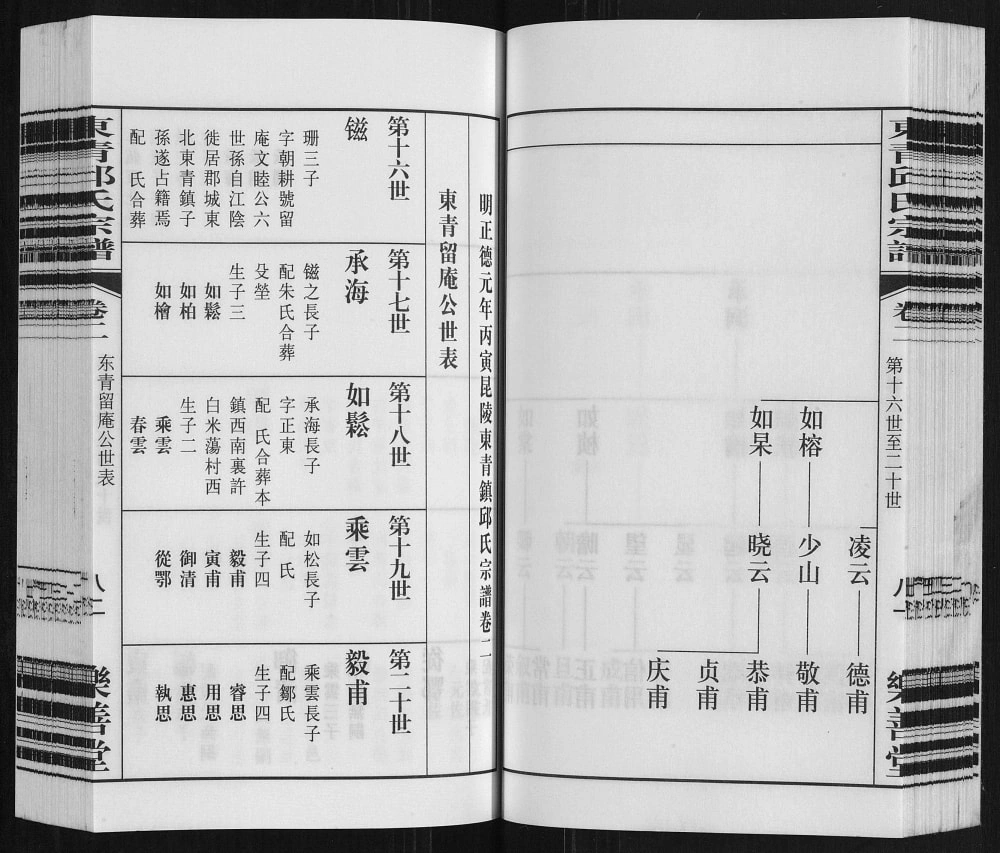 第十六世至二十世
凌云
德甫
如榕
少山
敬甫
如杲
晓云
恭甫
贞甫
庆甫
明正德元年丙寅昆陵東青鎮邱氏宗譜卷二
東青留庵公世表
第十六世
镃
珊三子
字朝耕號留
庵文睦公六
世孫自江陰
徙居郡城東
北東青鎮子
孫遂占籍焉
配　氏合葬
第十七世
承海
镃之長子
配朱氏合葬
殳塋
生子三
如鬆
如柏
如檜
第十八世
如鬆
承海長子
字正東
配　氏合葬本
鎮西南裏許
白米蕩村西
生子二
乘雲
春雲
第十九世
乘雲
如松長子
配　氏
生子四
毅甫
寅甫
御清
從鄂
第二十世
毅甫
乘雲長子
配鄒氏
生子四
睿思
用思
惠思
執思
東青邱氏宗譜
卷二
东青留庵公世表
八二
樂善堂